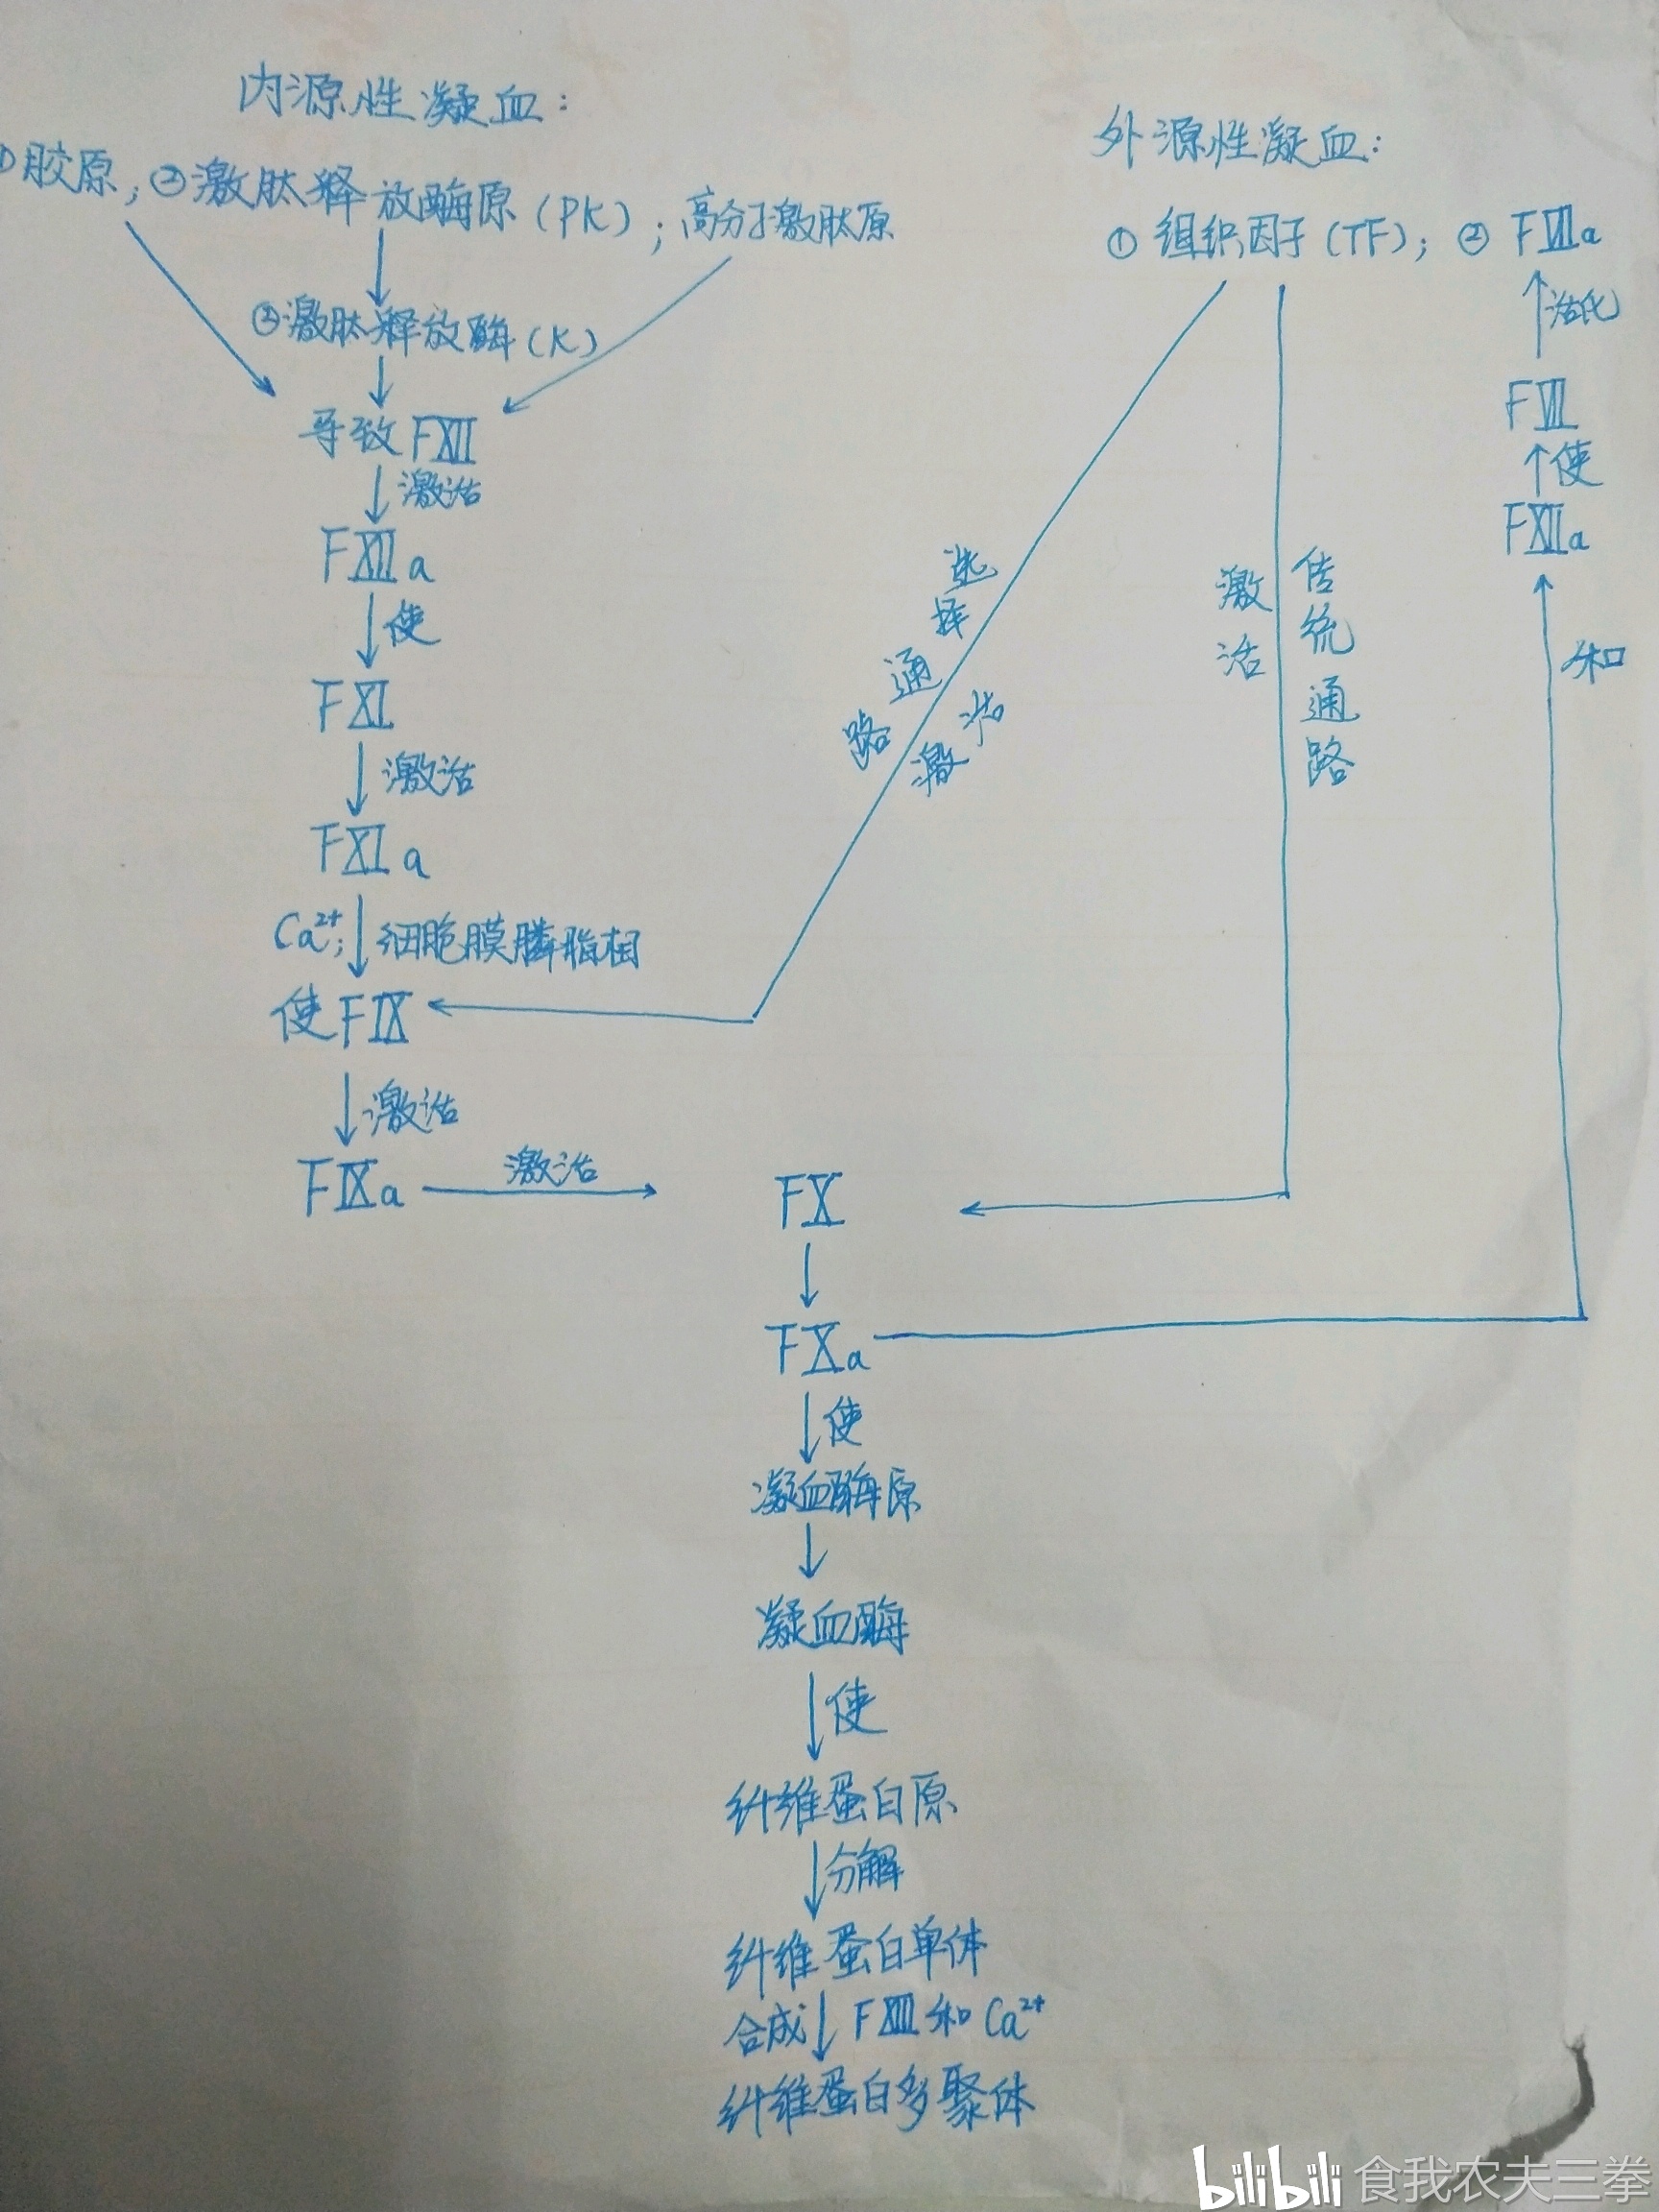 内源性凝血：
①胶原；②激肽释放酶原（PK）；高分子激肽原
③激肽释放酶（K）
导致FⅫ
激活
FⅫa
使
FⅪ
激活
FⅪa
Ca²⁺；细胞膜膦脂相
使FⅨ
激活
FⅨa
激活
外源性凝血：
①组织因子（TF）；②FⅦa
活化
FⅦ
使
FⅫa
和
选择通路
激活
激活
传统通路
FⅩ
FⅩa
使
凝血酶原
凝血酶
使
纤维蛋白原
分解
纤维蛋白单体
合成 FⅩⅢ和Ca²⁺
纤维蛋白多聚体
bilibili 食我农夫三拳